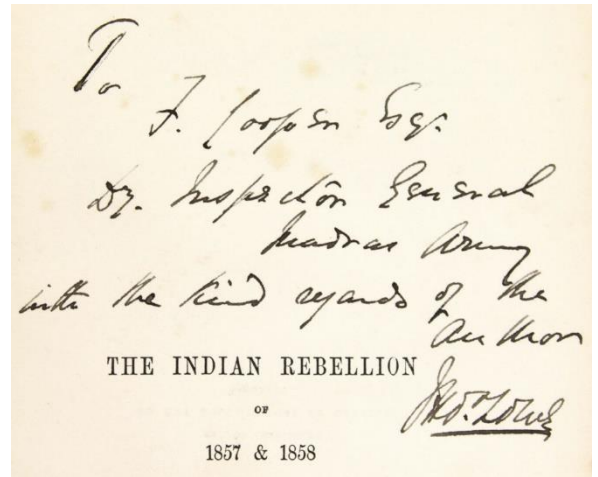 To
F. Cooper Esqr.
Dy. Inspector General
Madras Army
with the kind regards of the
Author
THE INDIAN REBELLION
OF
1857 & 1858
Thos. Lowe